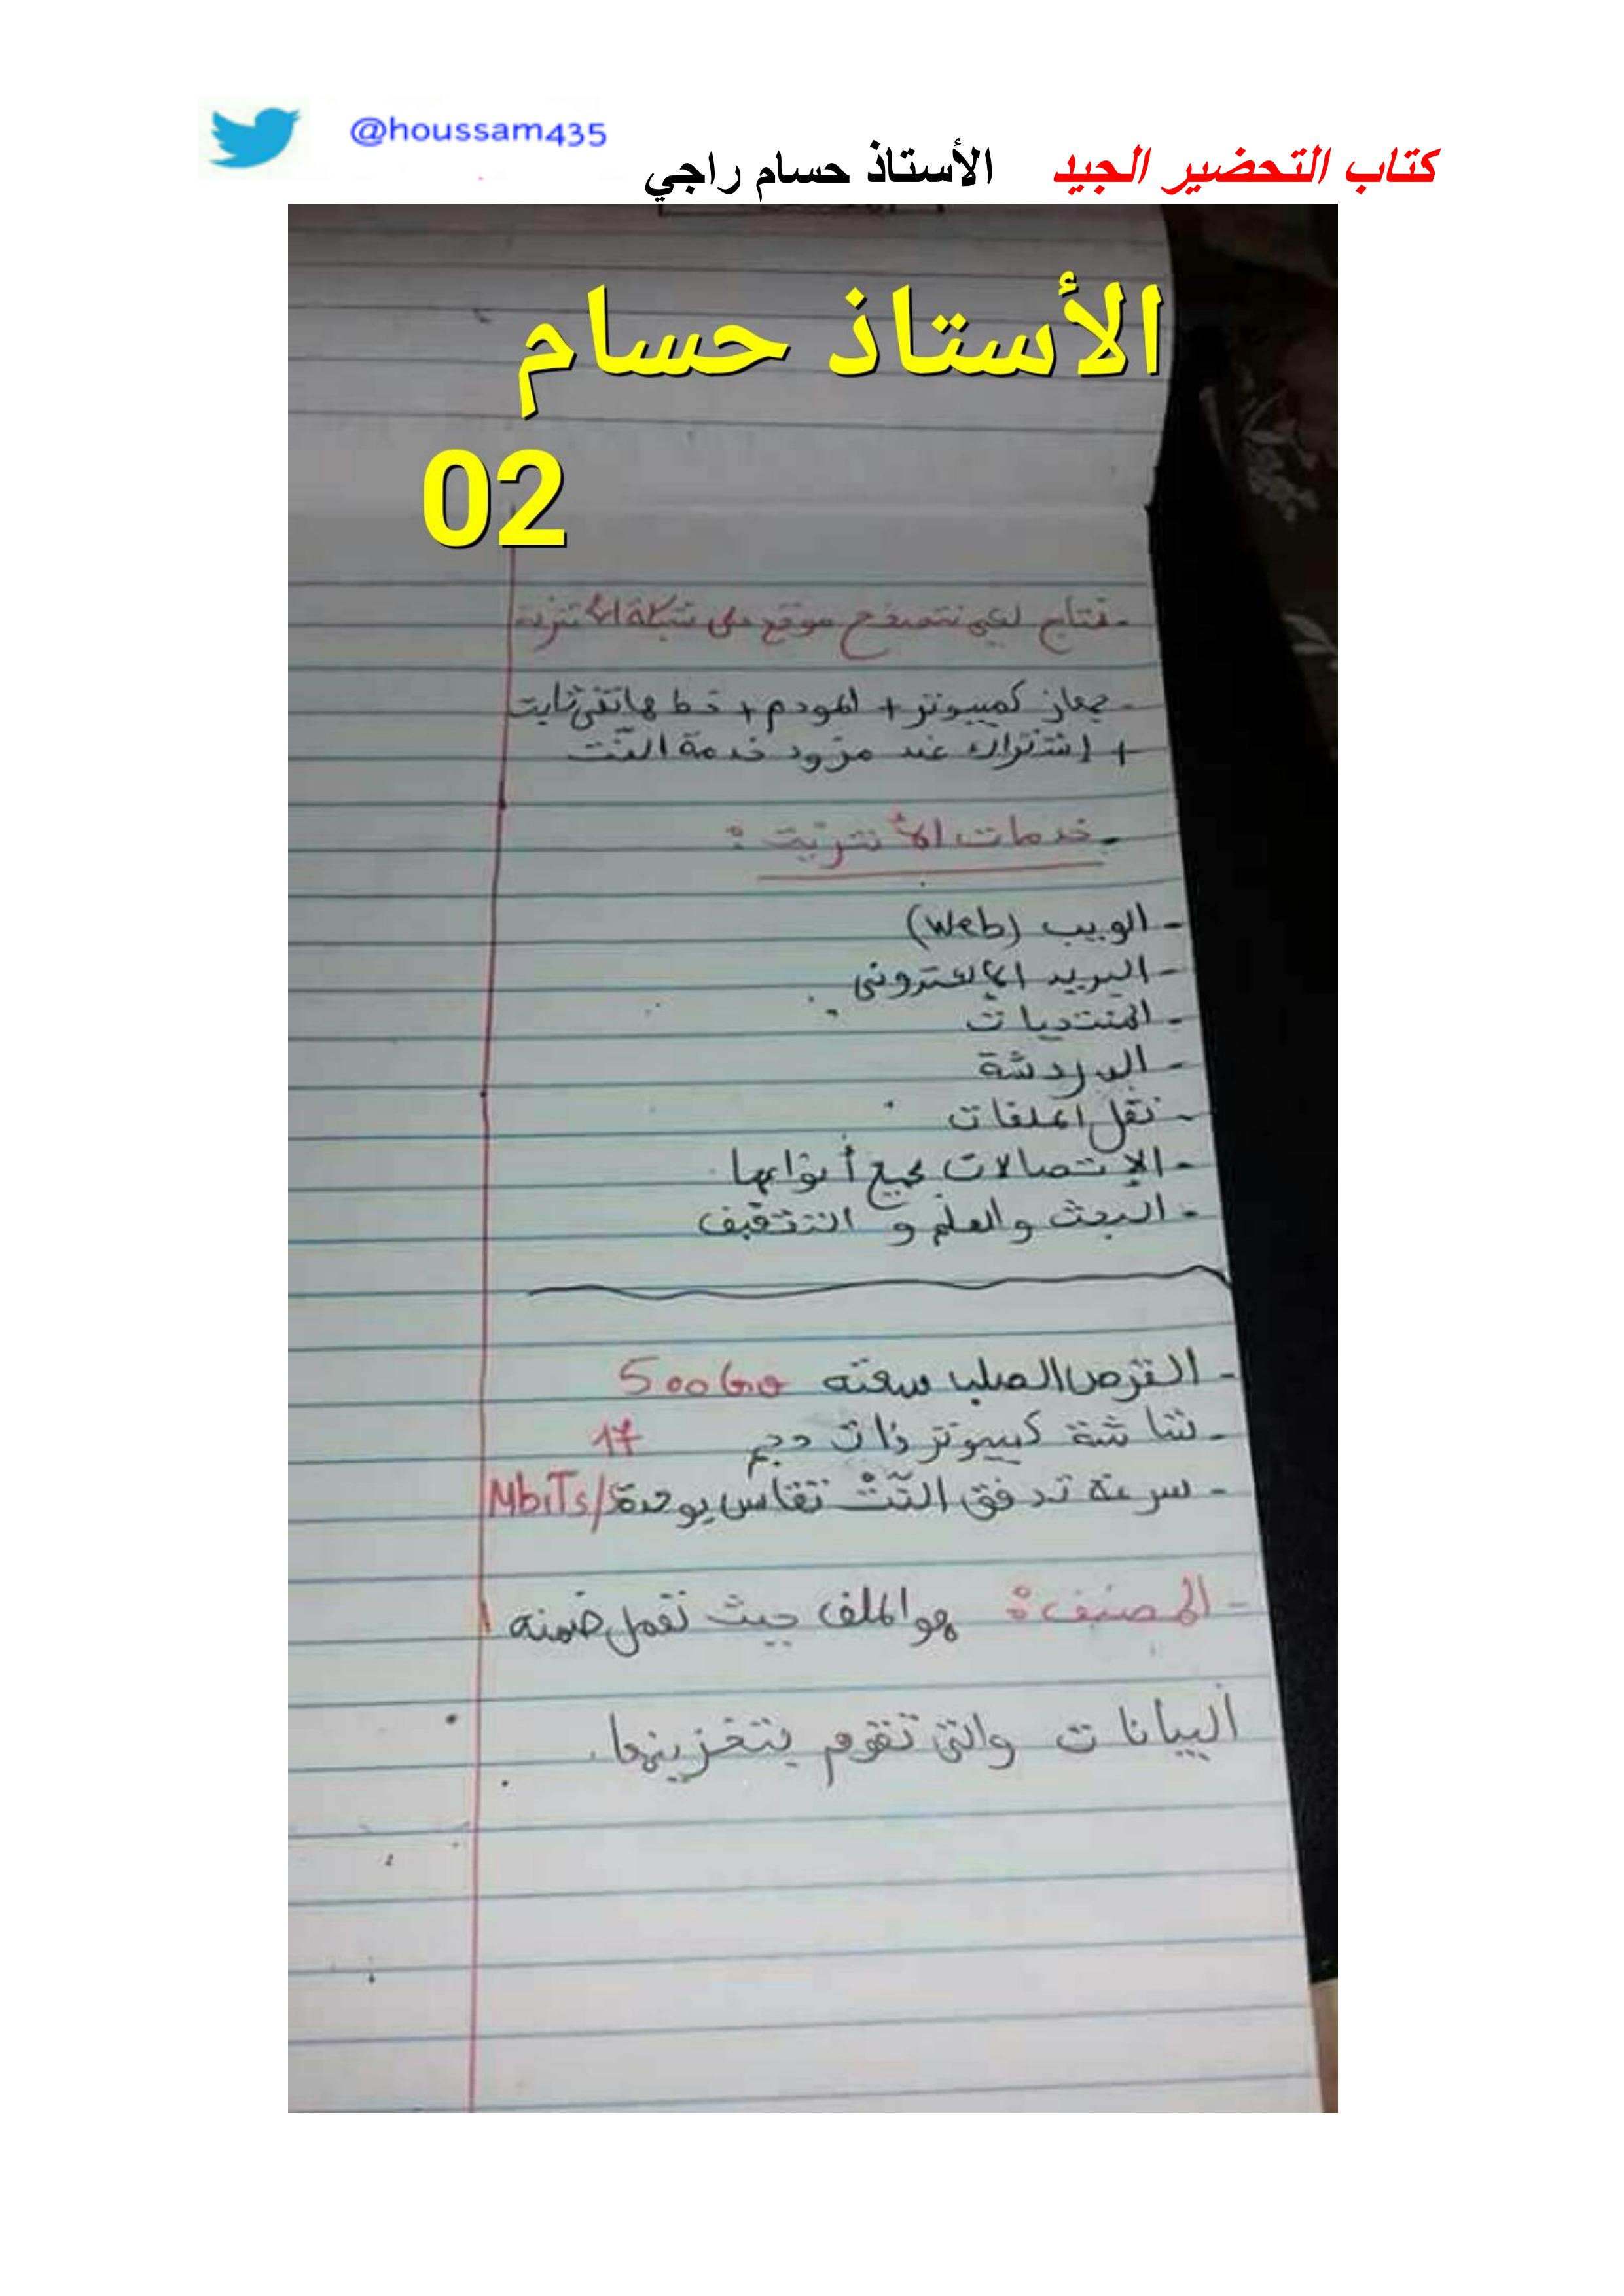 @houssam435
كتاب التحضير الجيد الأستاذ حسام راجي
الأستاذ حسام
02
- نحتاج لكي نتصفح موقع على شبكة الأنترنت
- جهاز كمبيوتر + المودم + خط هاتفي ثابت
+ إشتراك عند مزود خدمة النت
- خدمات الأنترنيت :
- الويب (Web)
- البريد الإلكتروني
- المنتديات
- الدردشة
- نقل الملفات
- الإتصالات بجميع أنواعها
- البحث والعلم و التثقيف
- القرص الصلب سعته 500Go
- شاشة كمبيوتر ذات حجم 17
- سرعة تدفق النت تقاس بوحدة Mbits/s
- المصنف : هو الملف حيث نعمل ضمنه
البيانات والتي تقوم بتخزينها.